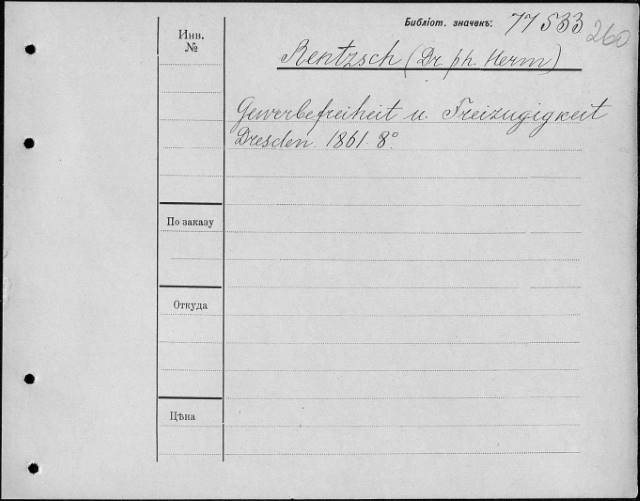 Библіот. значекъ: 77533 260
Инв.
№
Rentzsch (Dr. ph. Herm)
Gewerbefreiheit u. Freizugigkeit
Dresden. 1861. 8°.
По заказу
Откуда
Цѣна